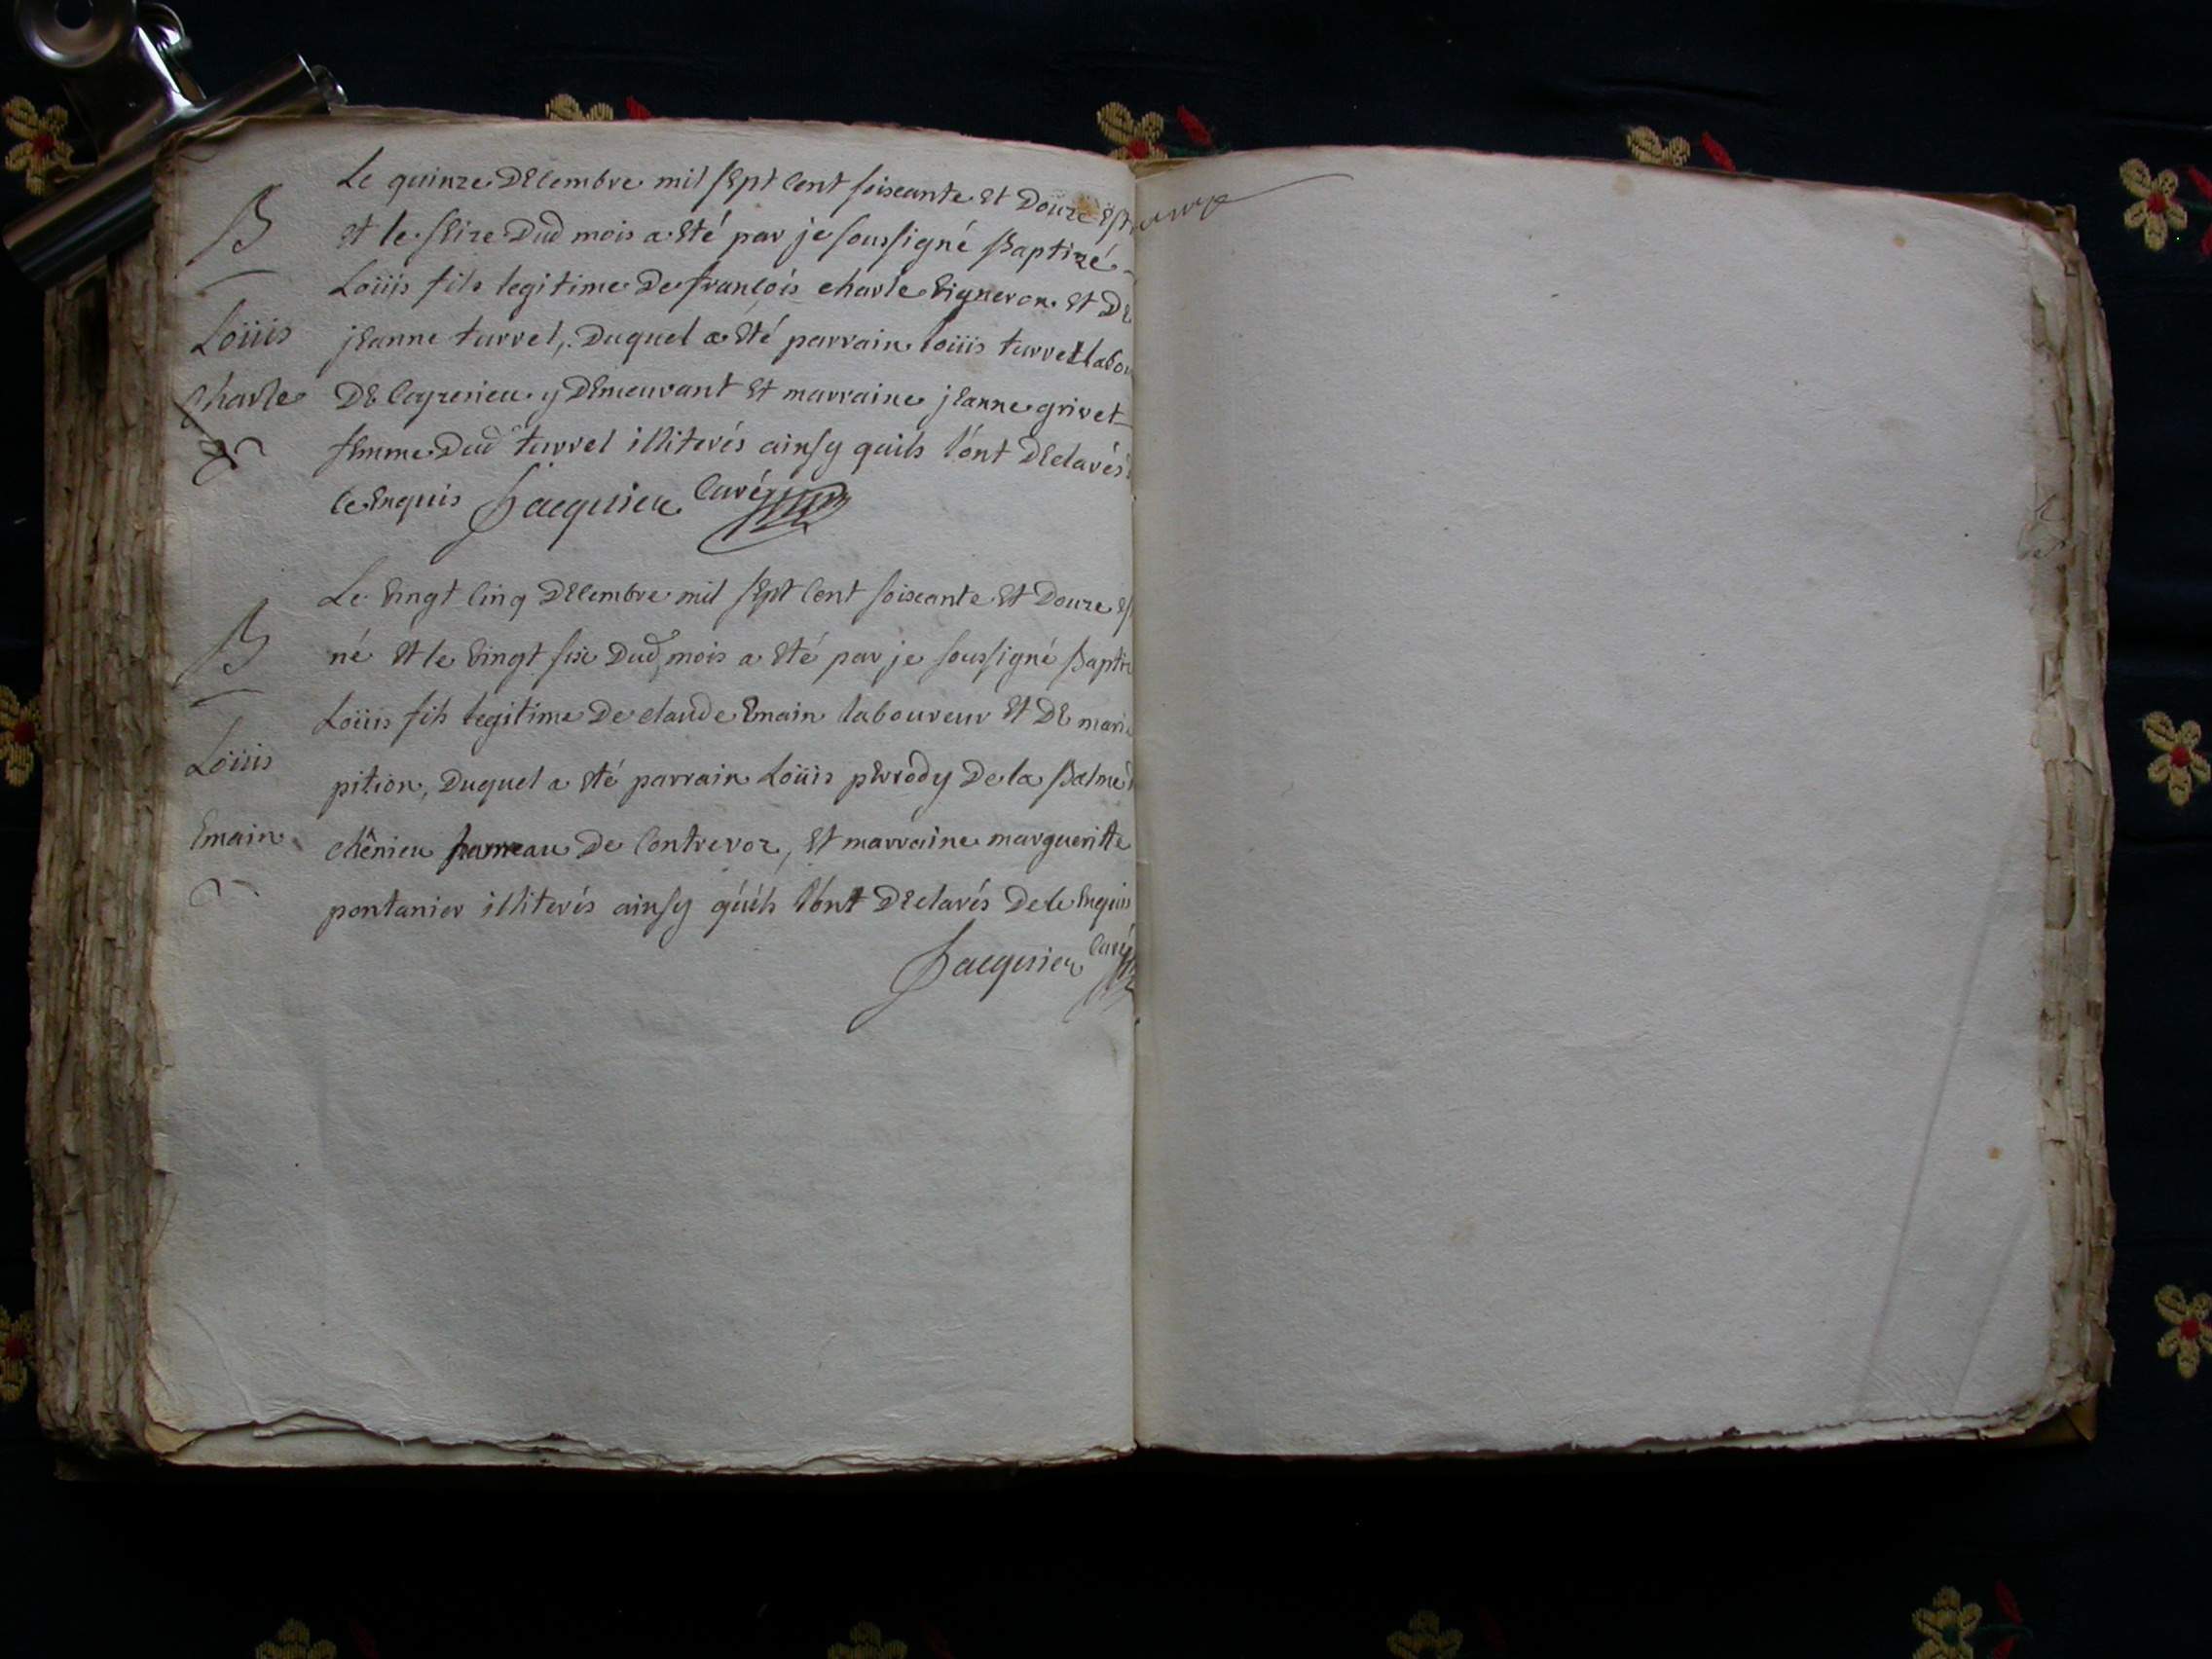 B
Loüis
Charle
Le quinze Décembre mil sept cent soixante et Douze est
et le seize Dud mois a été par je soussigné Baptizé
Loüis fils legitime De françois charle vigneron et De
jeanne turrel, Duquel a été parrain loüis turrel labou
De Ceyzerieu y Demeurant et marraine jeanne grivet
femme Dud turrel illiterés ainsy quils l'ont Déclarés
ce enquis Jacquier Curé
B
Loüis
Emain
Le vingt cinq Décembre mil sept cent soixante et Douze es
né et le vingt six Dud mois a été par je soussigné Bapti
Loüis fils legitime De claude Emain laboureur et De marie
pition, Duquel a été parrain Loüis perrody De la Balme
chênieu hameau De Contrevoz, et marraine margueritte
pontanier illiterés ainsy qu'ils l'ont Déclarés De ce enquis
Jacquier Curé